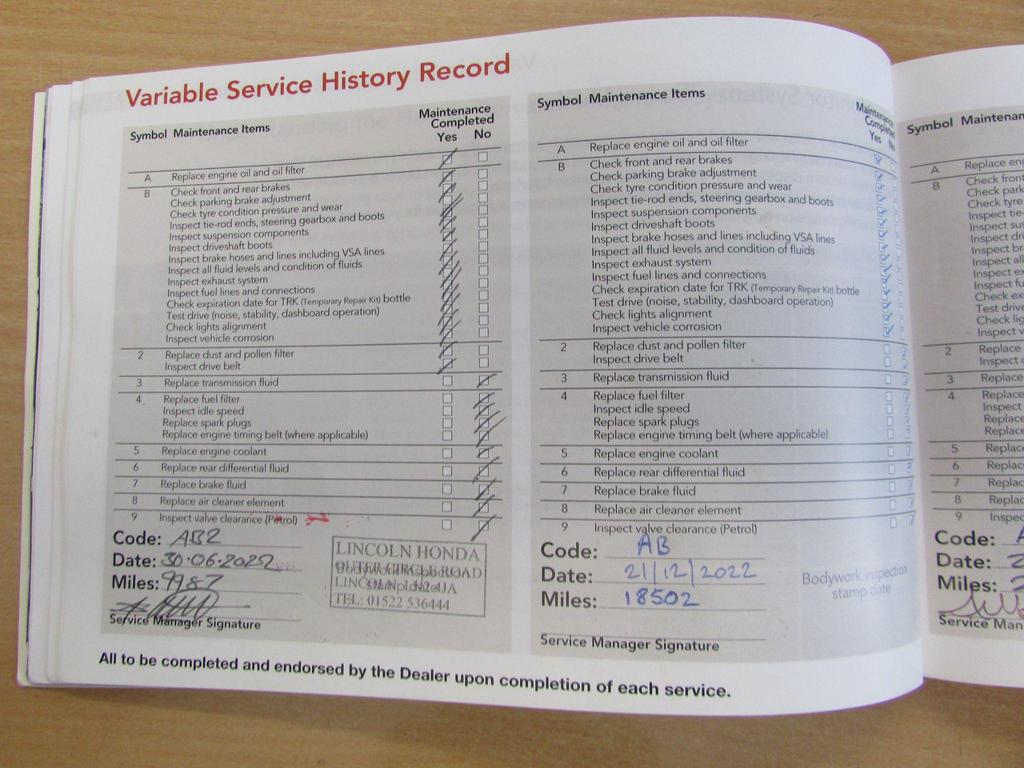 Variable Service History Record
Symbol Maintenance Items
Maintenance
Completed
Yes No
A Replace engine oil and oil filter
B Check front and rear brakes
Check parking brake adjustment
Check tyre condition pressure and wear
Inspect tie-rod ends, steering gearbox and boots
Inspect suspension components
Inspect driveshaft boots
Inspect brake hoses and lines including VSA lines
Inspect all fluid levels and condition of fluids
Inspect exhaust system
Inspect fuel lines and connections
Check expiration date for TRK (Temporary Repair Kit) bottle
Test drive (noise, stability, dashboard operation)
Check lights alignment
Inspect vehicle corrosion
2 Replace dust and pollen filter
Inspect drive belt
3 Replace transmission fluid
4 Replace fuel filter
Inspect idle speed
Replace spark plugs
Replace engine timing belt (where applicable)
5 Replace engine coolant
6 Replace rear differential fluid
7 Replace brake fluid
8 Replace air cleaner element
9 Inspect valve clearance (Petrol)
Code: AB2
Date: 30.06.2022
Miles: 9987
Service Manager Signature
LINCOLN HONDA
OUTER CIRCLE ROAD
LINCOLN
TEL: 01522 536444
Symbol Maintenance Items
Yes
A Replace engine oil and oil filter
B Check front and rear brakes
Check parking brake adjustment
Check tyre condition pressure and wear
Inspect tie-rod ends, steering gearbox and boots
Inspect suspension components
Inspect driveshaft boots
Inspect brake hoses and lines including VSA lines
Inspect all fluid levels and condition of fluids
Inspect exhaust system
Inspect fuel lines and connections
Check expiration date for TRK (Temporary Repair Kit) bottle
Test drive (noise, stability, dashboard operation)
Check lights alignment
Inspect vehicle corrosion
2 Replace dust and pollen filter
Inspect drive belt
3 Replace transmission fluid
4 Replace fuel filter
Inspect idle speed
Replace spark plugs
Replace engine timing belt (where applicable)
5 Replace engine coolant
6 Replace rear differential fluid
7 Replace brake fluid
8 Replace air cleaner element
9 Inspect valve clearance (Petrol)
Code: AB
Date: 21/12/2022
Miles: 18502
Service Manager Signature
Bodywork inspection
stamp date
All to be completed and endorsed by the Dealer upon completion of each service.
Symbol
A Replace
B Check
Check
Check tyre
Inspect
Inspect
Inspect
Inspect
Inspect all
Inspect
Inspect
Check
Test
Check
Inspect
2 Replace
Inspect
3
4 Replace
Inspect
Replace
5
6
7
8
9
Code:
Date:
Miles:
Service